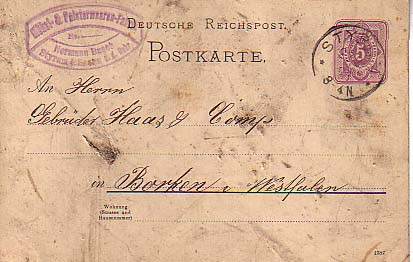 Möbel- & Polsterwaren-
Hermann
DEUTSCHE REICHSPOST.
POSTKARTE.
5
8-4N
An Herrn
Gebrüder Haas & Comp
in Borken i/Westfalen
Wohnung
(Strasse und
Hausnummer)